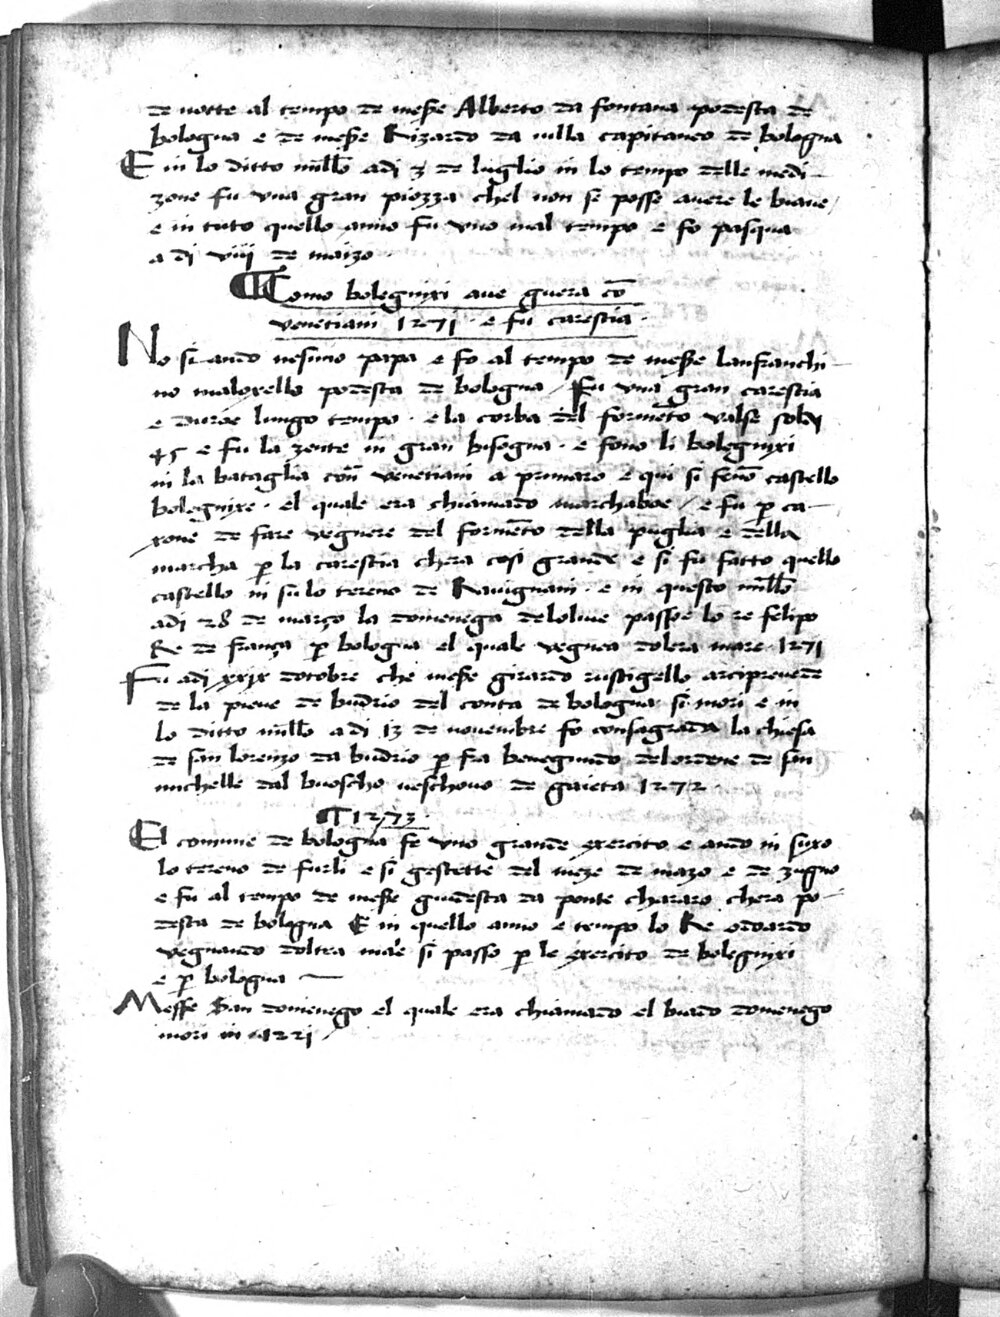 de notte al tempo de messe Alberto da fontana podesta de
bologna e de messe Rizardo da uilla capitaneo de bologna
E in lo ditto mill̅o adi 3 de luglio in lo tempo delle medi
zone fu vna gran piozza chel non se posse auere le biaue /
e in tuto quello anno fu vno mal tempo e fo pasqua
a di viii de mazo
Como bolegnixi aue guera co̅
venetiani 1271 · e fu carestia ·
No si ando nesuno papa e fo al tempo de messe lanfranchi
no maloxello podesta de bologna / Fu vna gran carestia
e duroe lungo tempo · e la corba del forme̅to valse soldi
45 e fu la zente in gran bisogna · e fono li bolegnixi
in la bataglia con venetiani a primaro e qui si feno castello
bolegnixe · el quale era chiamado marchaboe / e fu p ca
xone de fare vegnere del forme̅to della puglia e della
marcha p la carestia chera cosi grande e si fu fatto quello
castello in su lo tereno de Rauignani · e in questo mill̅o
adi 28 de março la domenega delolive passoe lo re felipo
Re de frança p bologna el quale vegnea dolera mare 1271
Fu adi xxix dotobre che messe girardo rustigello arciprevede
de la pieue de budrio del conta de bologna si mori e in
lo ditto mill̅o a di 13 de nouembre fo consagrada la chiesa
de san lorenzo da budrio p fra benegnudo delordene de san
michelle dal buoscho ueschouo de gaieta 1272 ·
1273 ·
El comune de bologna fe vno grande exercito e ando in suxo
lo tereno de furli e si gestette del meze de mazo e de zugno
e fu al tempo de messe guidesta da ponte chararo chera po
desta de bologna E in quello anno e tempo lo Re odoardo
vegnando doltra mare si passo p le exercito de bolegnixi
e p bologna
Messe San domenego el quale era chiamado el biado domenego
mori in 1221 /